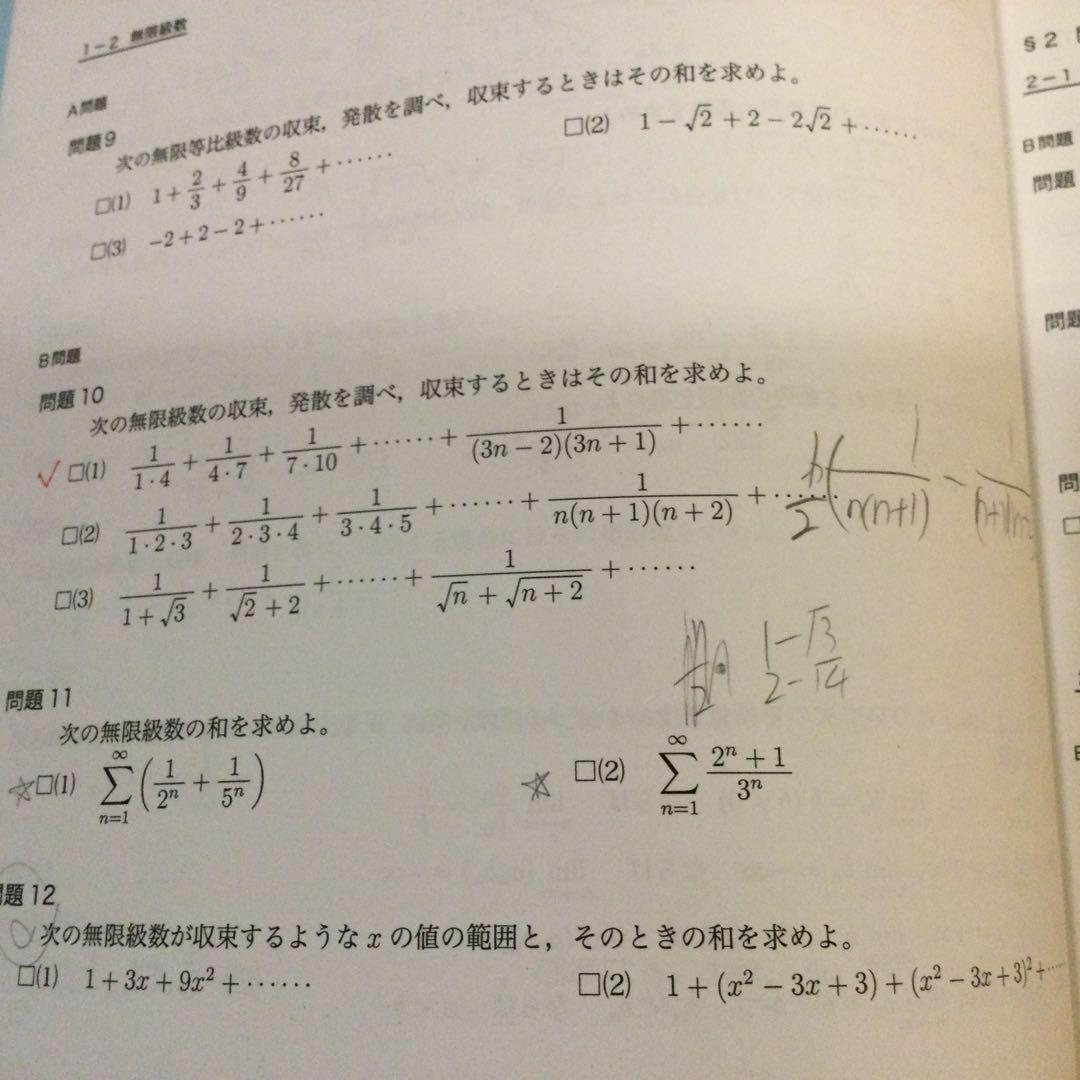 1-2 無限級数
A問題
問題9
次の無限等比級数の収束，発散を調べ，収束するときはその和を求めよ。
□(1) 1 + 2/3 + 4/9 + 8/27 + ……
□(2) 1 − √2 + 2 − 2√2 + ……
□(3) −2 + 2 − 2 + ……
B問題
問題10
次の無限級数の収束，発散を調べ，収束するときはその和を求めよ。
□(1) 1/(1·4) + 1/(4·7) + 1/(7·10) + …… + 1/((3n−2)(3n+1)) + ……
□(2) 1/(1·2·3) + 1/(2·3·4) + 1/(3·4·5) + …… + 1/(n(n+1)(n+2)) + ……
□(3) 1/(1+√3) + 1/(√2+2) + …… + 1/(√n+√(n+2)) + ……
1−√3
2−√4
問題11
次の無限級数の和を求めよ。
☆□(1) ∑_{n=1}^{∞} (1/2ⁿ + 1/5ⁿ)
☆□(2) ∑_{n=1}^{∞} (2ⁿ+1)/3ⁿ
問題12
次の無限級数が収束するような x の値の範囲と，そのときの和を求めよ。
□(1) 1 + 3x + 9x² + ……
□(2) 1 + (x² − 3x + 3) + (x² − 3x + 3)² + ……
§2
2-1
B問題
問題